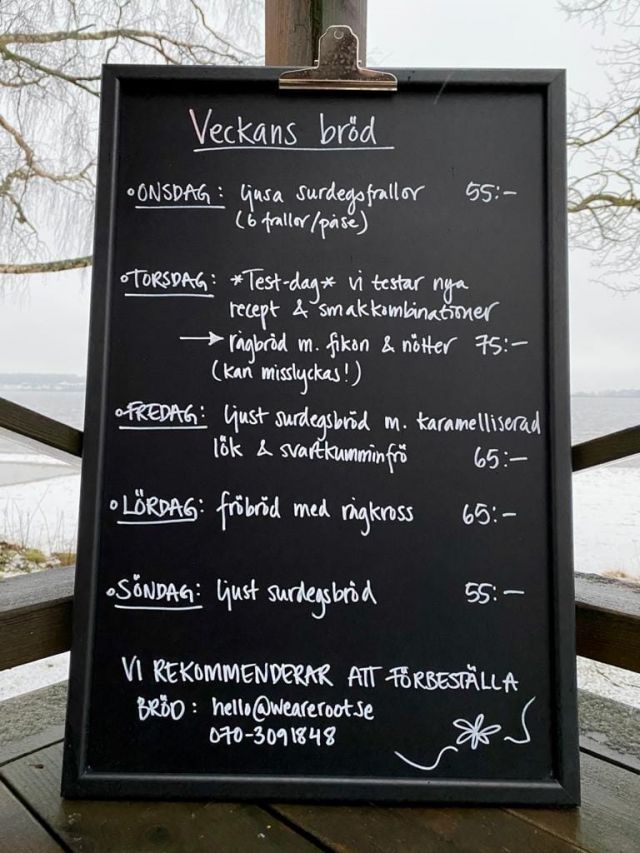 Veckans bröd
• ONSDAG: ljusa surdegsfrallor 55:-
(6 frallor/påse)
• TORSDAG: *Test-dag* vi testar nya
recept & smakkombinationer
→ rågbröd m. fikon & nötter 75:-
(kan misslyckas!)
• FREDAG: ljust surdegsbröd m. karamelliserad
lök & svartkumminfrö 65:-
• LÖRDAG: fröbröd med rågkross 65:-
• SÖNDAG: ljust surdegsbröd 55:-
VI REKOMMENDERAR ATT FÖRBESTÄLLA
BRÖD: hello@weareroot.se
070-3091848